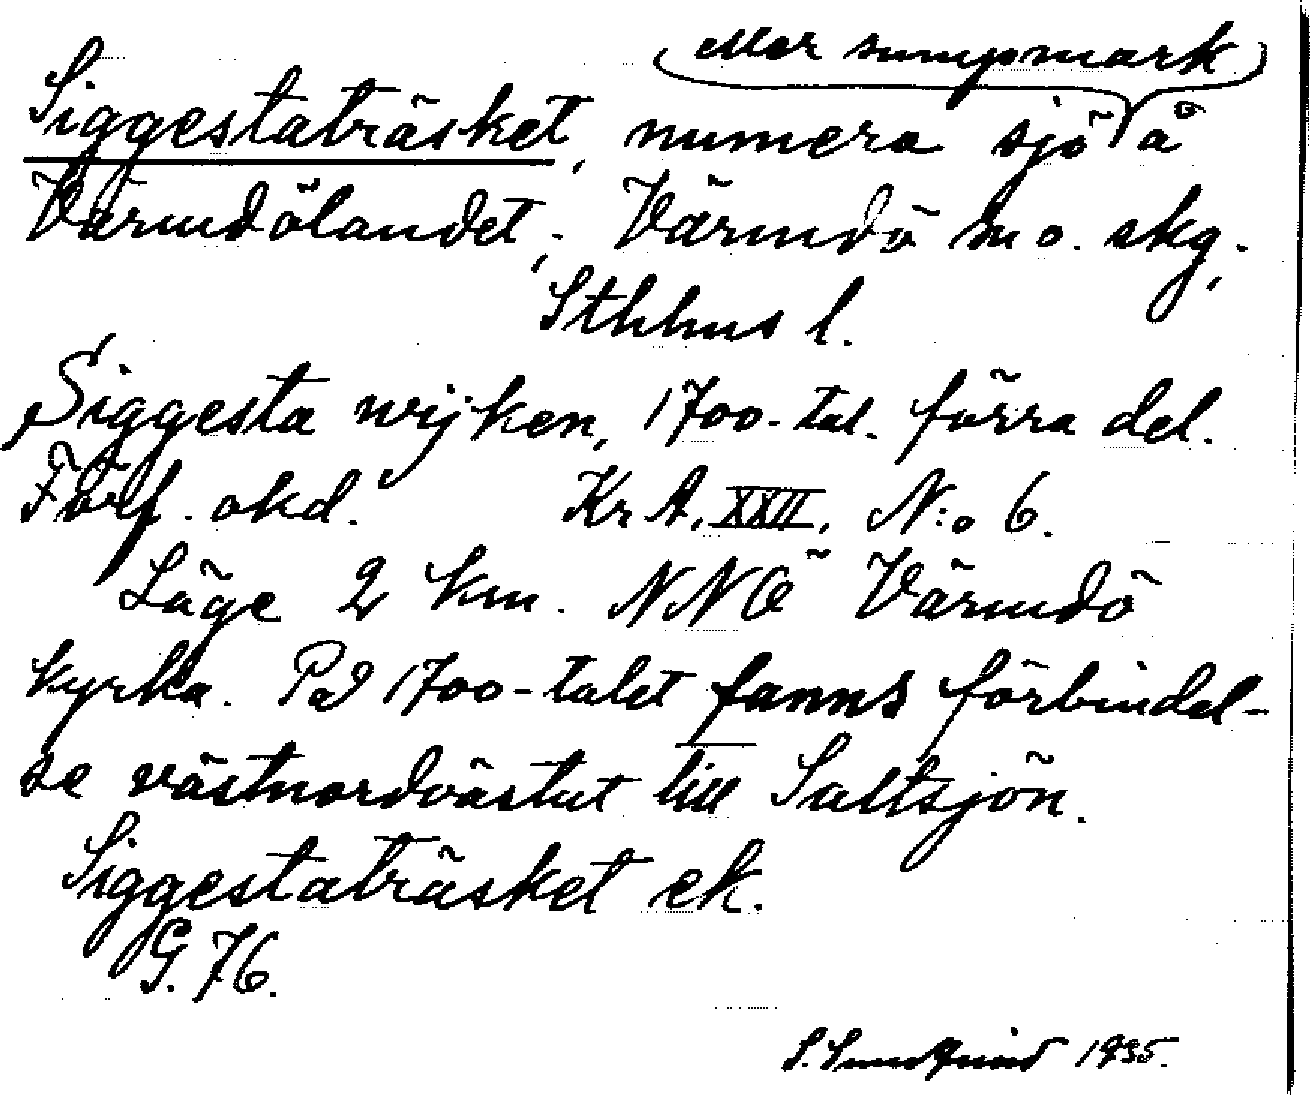 (eller sumpmark)
Siggestaträsket, numera sjö å
Värmdölandet, Värmdö sn o. skg,
Sthlms l.
Siggesta wijken, 1700-tal. förra del.
Förf. okd. Kr A, XXII, N:o 6.
Läge 2 km. NNÖ Värmdö
kyrka. På 1700-talet fanns förbindel-
se västnordvästut till Saltsjön.
Siggestaträsket ek.
G. 76.
S. Sundqvist 1935.